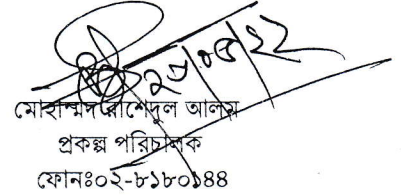 ২৩/০৫/২২
মোহাম্মদ রাশেদুল আলম
প্রকল্প পরিচালক
ফোনঃ০২-৮১৮০১৪৪